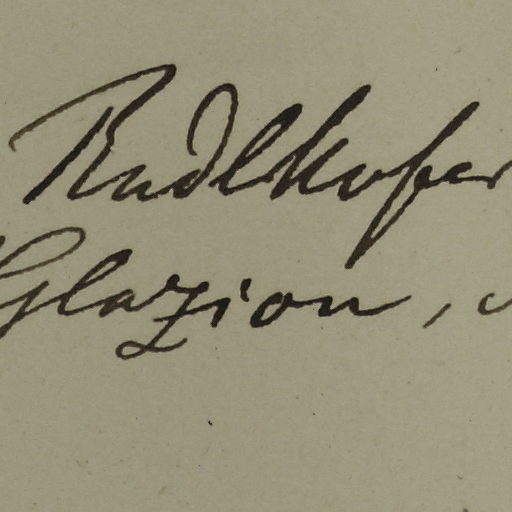 Radlkofer
Glaziou,